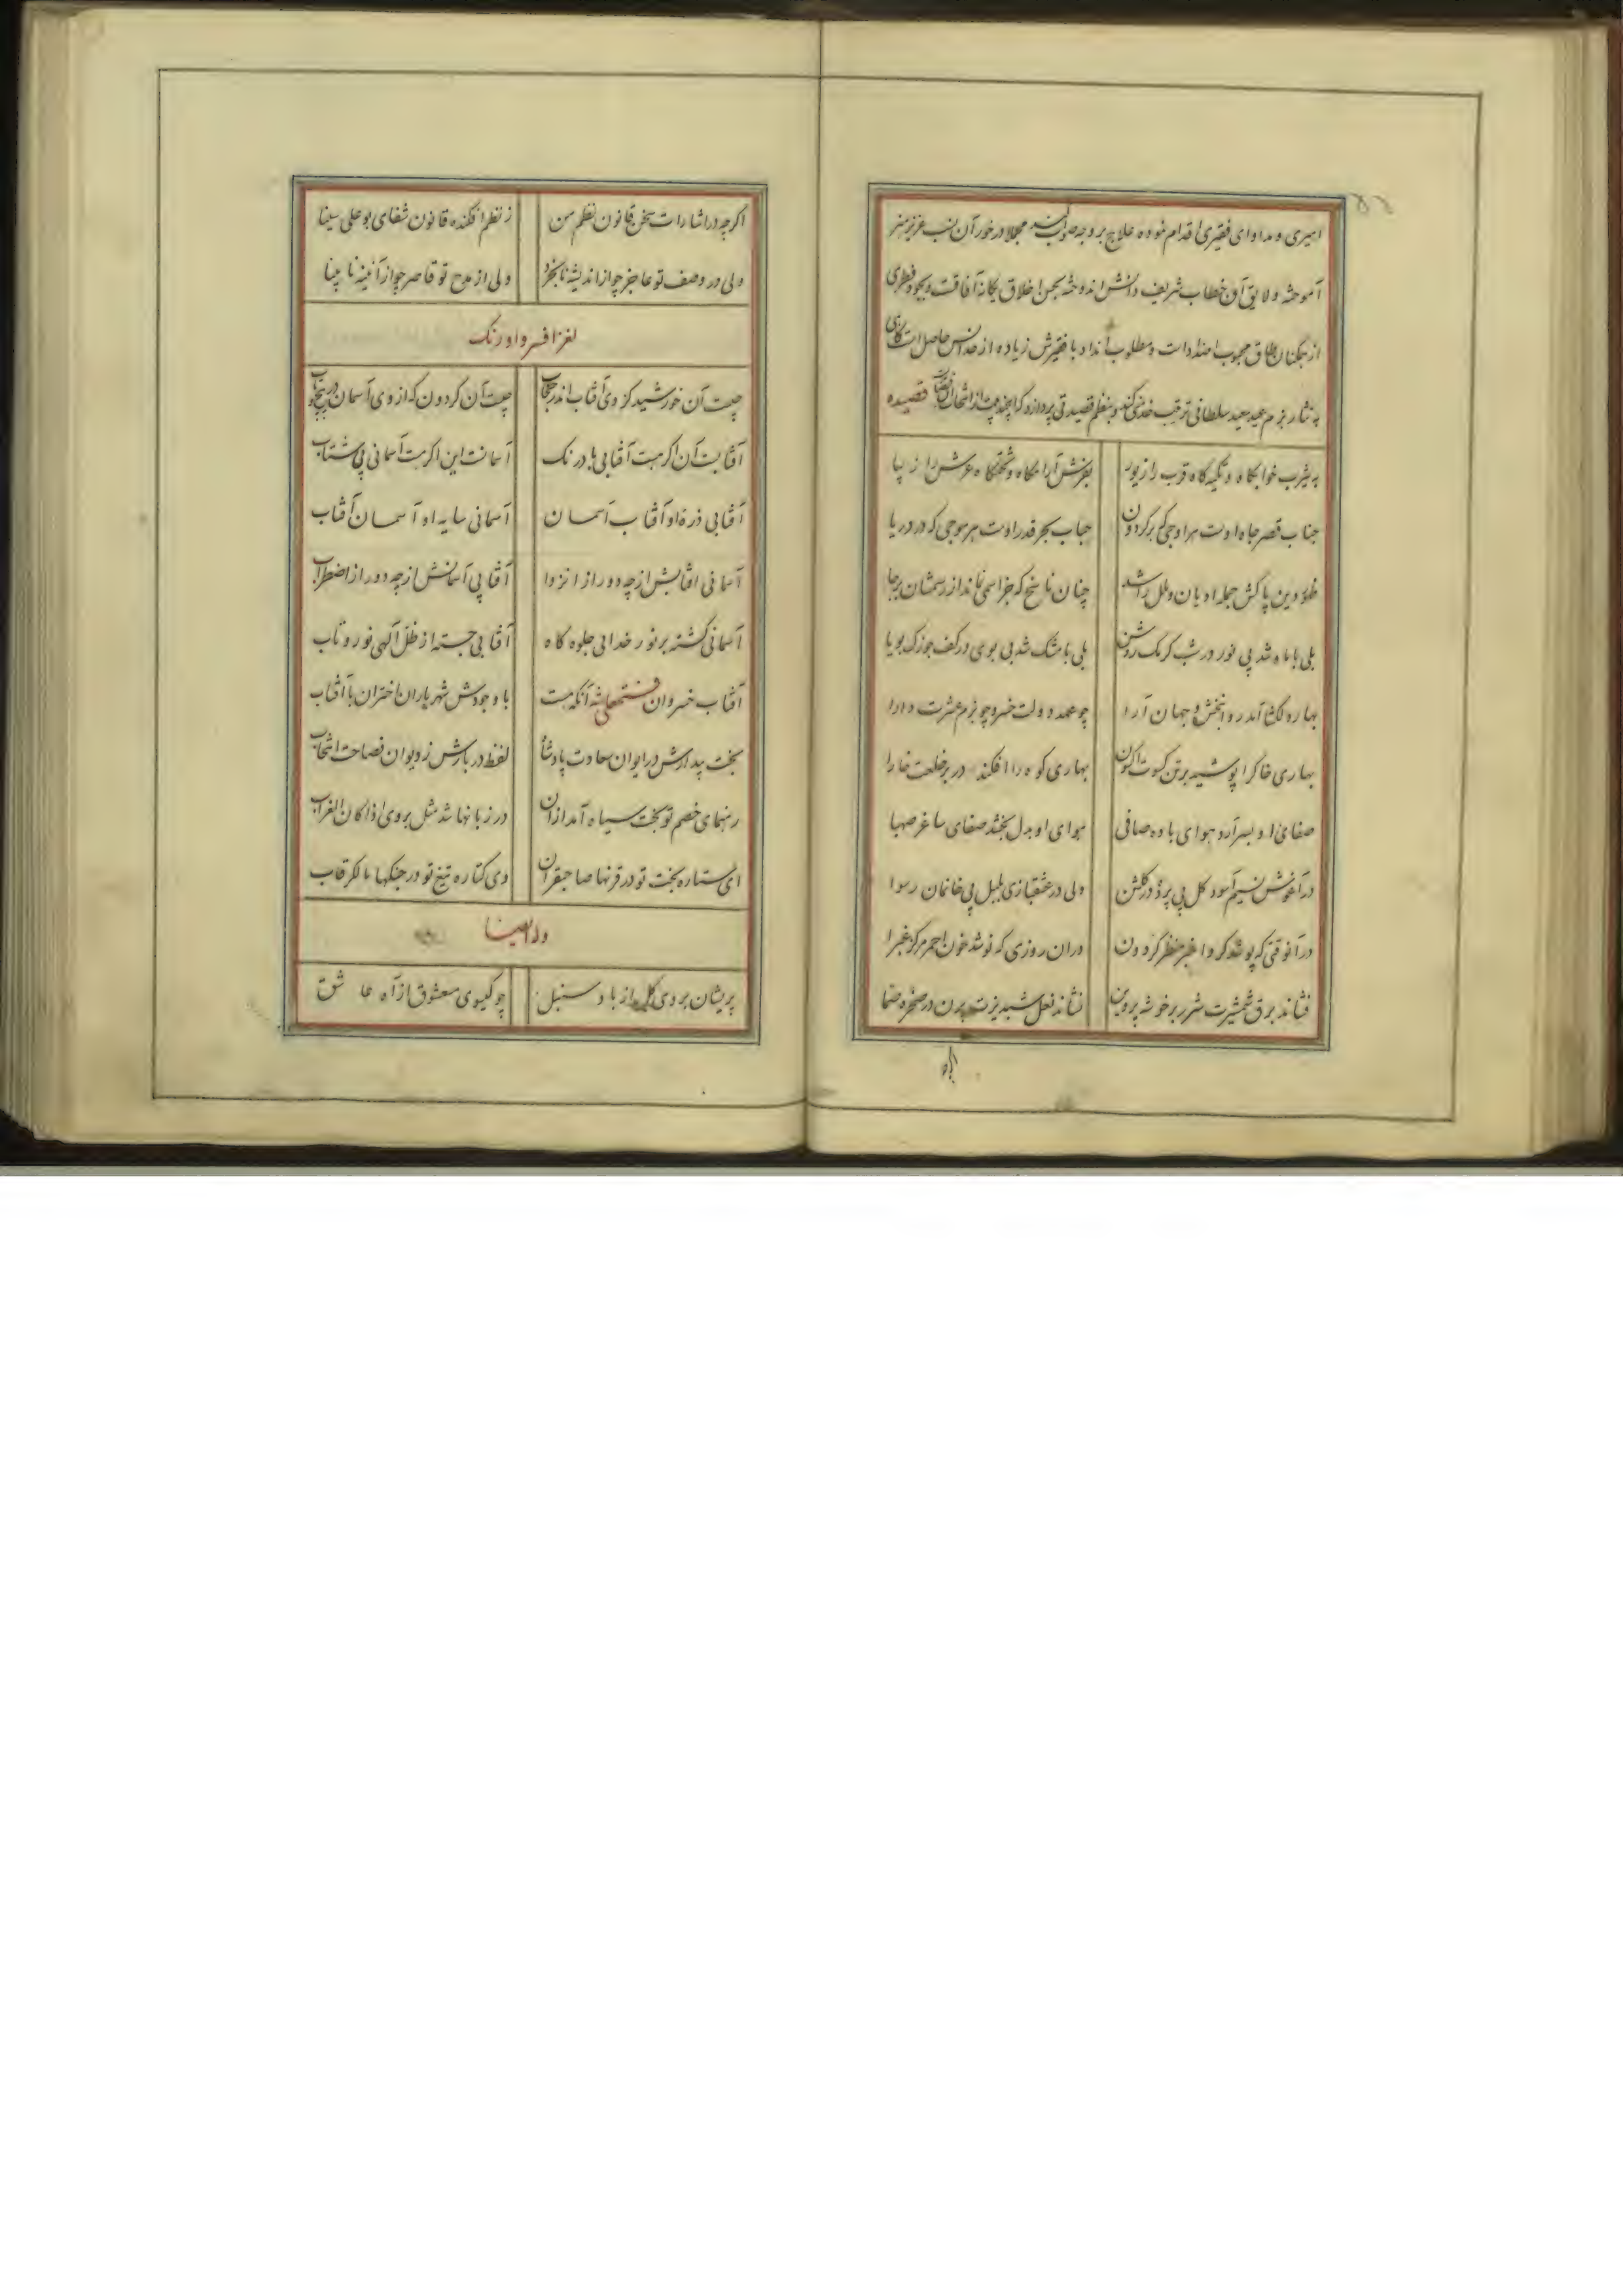 امیری و مداوای فقیری اقدام نموده علاج بر وجه صواب مجملا در خور آن نسب عزیز هنر
آموخته و لایق آن خطاب شریف دانش اندوخته بحسن اخلاق یکانه آفاقست و بجود فطری
از همکنان طاق محبوب اضدادست و مطلوب انداد با فقیرش زیاده از حد انس حاصل است
به نثار بزم عید سعید سلطانی ترتیب و بنظم قصیدتی پردازد که این چند بیت از قصیده
به یثرب خوابکاه و تکیه کاه قرب را زیور
بفرش آرامکاه و تختکاه عرش را زیبا
جناب قصر جاه اوست هر اوجی که بر کردون
حباب بحر قدر اوست هر موجی که در دریا
ظهور دین پاکش جمله ادیان و ملل را شد
چنان ناسخ که جز اسمی نماند از رسمشان برجا
بلی با ماه شد بی نور در شب کرمک روشن
بلی با مشک شد بی بوی در کف جوزک بویا
بهار دلکشا آمد روانبخش و جهان آرا
چو عهد دولت خسرو چو بزم عشرت دارا
بهاری خاک را پوشید بر تن کسوت اکسون
بهاری کوه را افکند در بر خلعت خارا
صفای او بسر آرد هوای باده صافی
هوای او بدل بخشد صفای ساغر صهبا
در آغوش نسیم آسود کل بی پرده در کلشن
ولی در عشقبازی بلبل بی خانمان رسوا
در آنوقتی که پوشد کرد اغبر منظر کردون
در ان روزی که نوشد خون احمر مرکز غبرا
فشاند برق شمشیرت شرر بر خوشه پروین
نشاند نعل شبدیزت پرن در صخره صما
اکر چه در اشارات سخن قانون نظم من
ز نظم افکنده قانون شفای بوعلی سینا
ولی در وصف تو عاجز چو از اندیشه نابخرد
ولی از مدح تو قاصر چو از آئینه نابینا
لغز افسر و اورنک
چیست آن خورشید کز وی آفتاب اندر حجاب
چیست آن کردون که از وی آسمان در پیچ و تاب
آفتابست آن اکر هست آفتابی با درنک
آسمانست این اکر هست آسمانی بی شتاب
آفتابی ذره او آفتاب آسمان
آسمانی سایه او آسمان آفتاب
آسمانی افتابش از چه دور از انزوا
آفتابی آسمانش از چه دور از اضطراب
آسمانی کشته بر نور خدایی جلوه کاه
آفتابی جسته از ظل آلهی نور و تاب
آفتاب خسروان فتحعلی شه آنکه هست
با وجودش شهریاران اختران با آفتاب
بخت بیدارش در ایوان سعادت پادشا
لفظ دربارش ز دیوان فصاحت انتخاب
رهنمای خصم تو بخت سیاه آمد از آن
در زبانها شد مثل بر وی اذا کان الغراب
ای ستاره بخت تو در قرنها صاحبقران
وی کتاره تیغ تو در جنکها مالک رقاب
وله ایضا
پریشان بروی کل از باد سنبل
چو کیسوی معشوق از آه عاشق